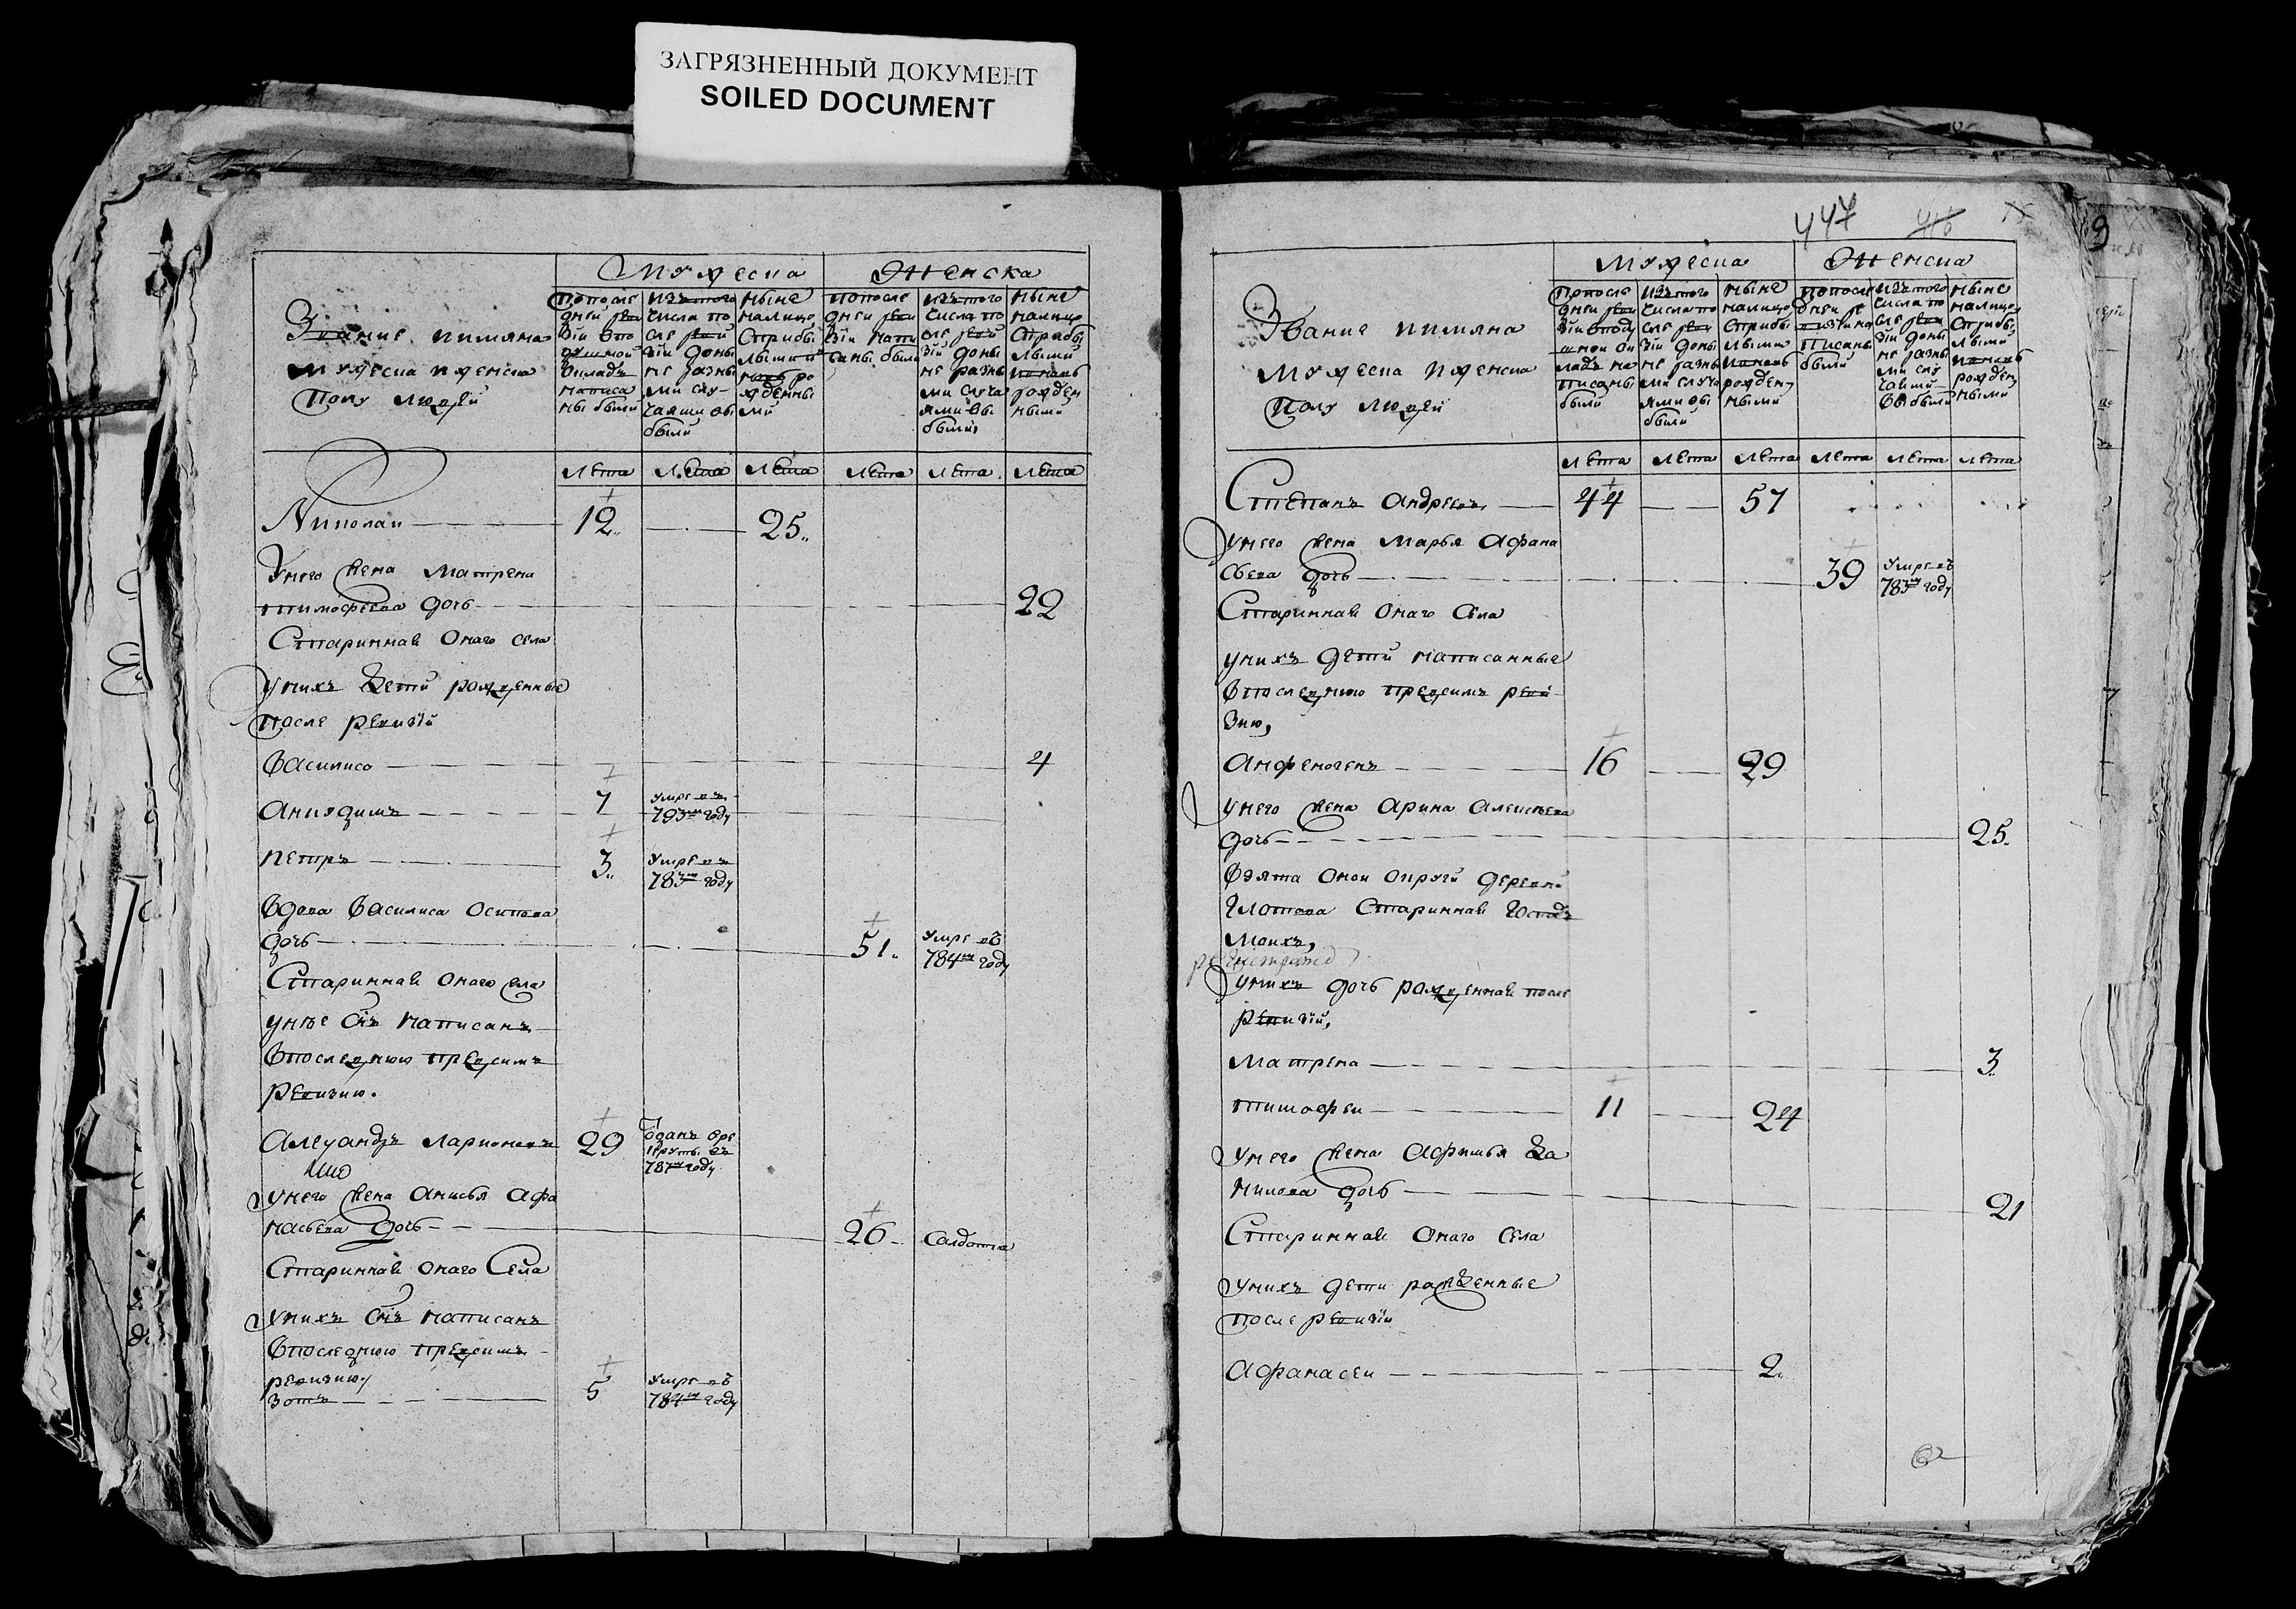 ЗАГРЯЗНЕННЫЙ ДОКУМЕНТ
SOILED DOCUMENT
Мужеска Женска
Звание имяна
мужеска иженска
полу людей
пополе
дней реви
зии впо
душной
окладъ
написа
ны были
изъ того
числа по
сле реви
зии до ны
не разны
ми слу-
чаями вы
были
ныне
на лицо
сприбы
лыми и
вновь ро
жденны
ми
попосле
дней реви
зии напи
саны были
изъ того
числа по
сле реви
зии доны
не разны
ми случа
ями вы
были,
ныне
на лицо
сприбы
лыми
ивновь
рожден
ными
лета лета лета лета лета лета
Николаи 12 25
Унего жена Матрена
тимофеева дочь 22
Стариннаѣ Онаго села
униxъ дети рожденные
после ревизїи
Василиса 4
Аникдимъ 7 умре въ
793м году
петръ 3 умре въ
783м году
Вдова Василиса Осипова
дочь 51 умре въ
784м году
Стариннаѣ Онаго села
унѣе снъ написанъ
впоследнюю предсимъ
ревизию.
Александръ Ларионовъ 29 Отданъ вре
круты въ
787м году
унего жена Анисья Афа
насьева дочь 26 Салдатка
Стариннаѣ онаго Села
унихъ снъ написанъ
впоследнюю предсимъ
ревизию
Зотъ 5 умре въ
784м году
447
9
Мужеска Женска
Звание имяна
мужеска иженска
полу людей
попосле
дней реви
зии вподу
шной ок
ладъ на
писаны
были
изъ того
числа по
сле реви
зии доны
не разны
ми случа
ями вы
были
ныне
на лицо
сприбы
лыми
ивновь
рожден
ными
попосле
дней ре
визїи на
писаны
были
изъ того
числа по
сле реви
зии доны
не разны
ми слу
чаями
выбыли
ныне
на лицо
сприбы
лыми
ивновь
рожден
ными
лета лета лета лета лета лета
Степанъ Андреевъ 44 57
унего жена Марья Афана
сьева дочь 39 умре въ
783м году
Стариннаѣ Онаго Села
унихъ дети написанные
впоследнюю предсимъ реви
зию,
Анфеногенъ 16 29
унего жена Арина Алексѣева
дочь 25
Взята оной округи деревни
Глотова Стариннаѣ Госпдъ
Моихъ,
унихъ дочь рожденнаѣ после
ревизїи,
Матрена 3
тимофеи 11 24
унего жена Афимья Да
нилова дочь 21
Стариннаѣ Онаго Села
унихъ дети рожденные
после ревизїи
Афанасеи 2